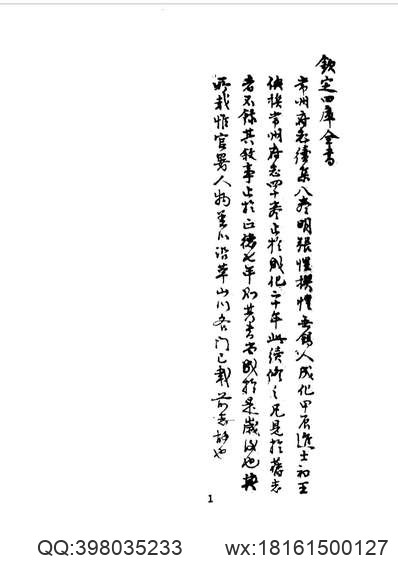 欽定四庫全書
常州府志續集八卷明張愷撰愷無錫人成化甲辰進士初王
撰常州府志四十卷止於成化二十年此續修之凡見於舊志
者不錄其敘事止於正德七年則其書當成於是歲也其
所載惟官署人物沿革山川各門已載前志故也
1
QQ:398035233 wx:18161500127